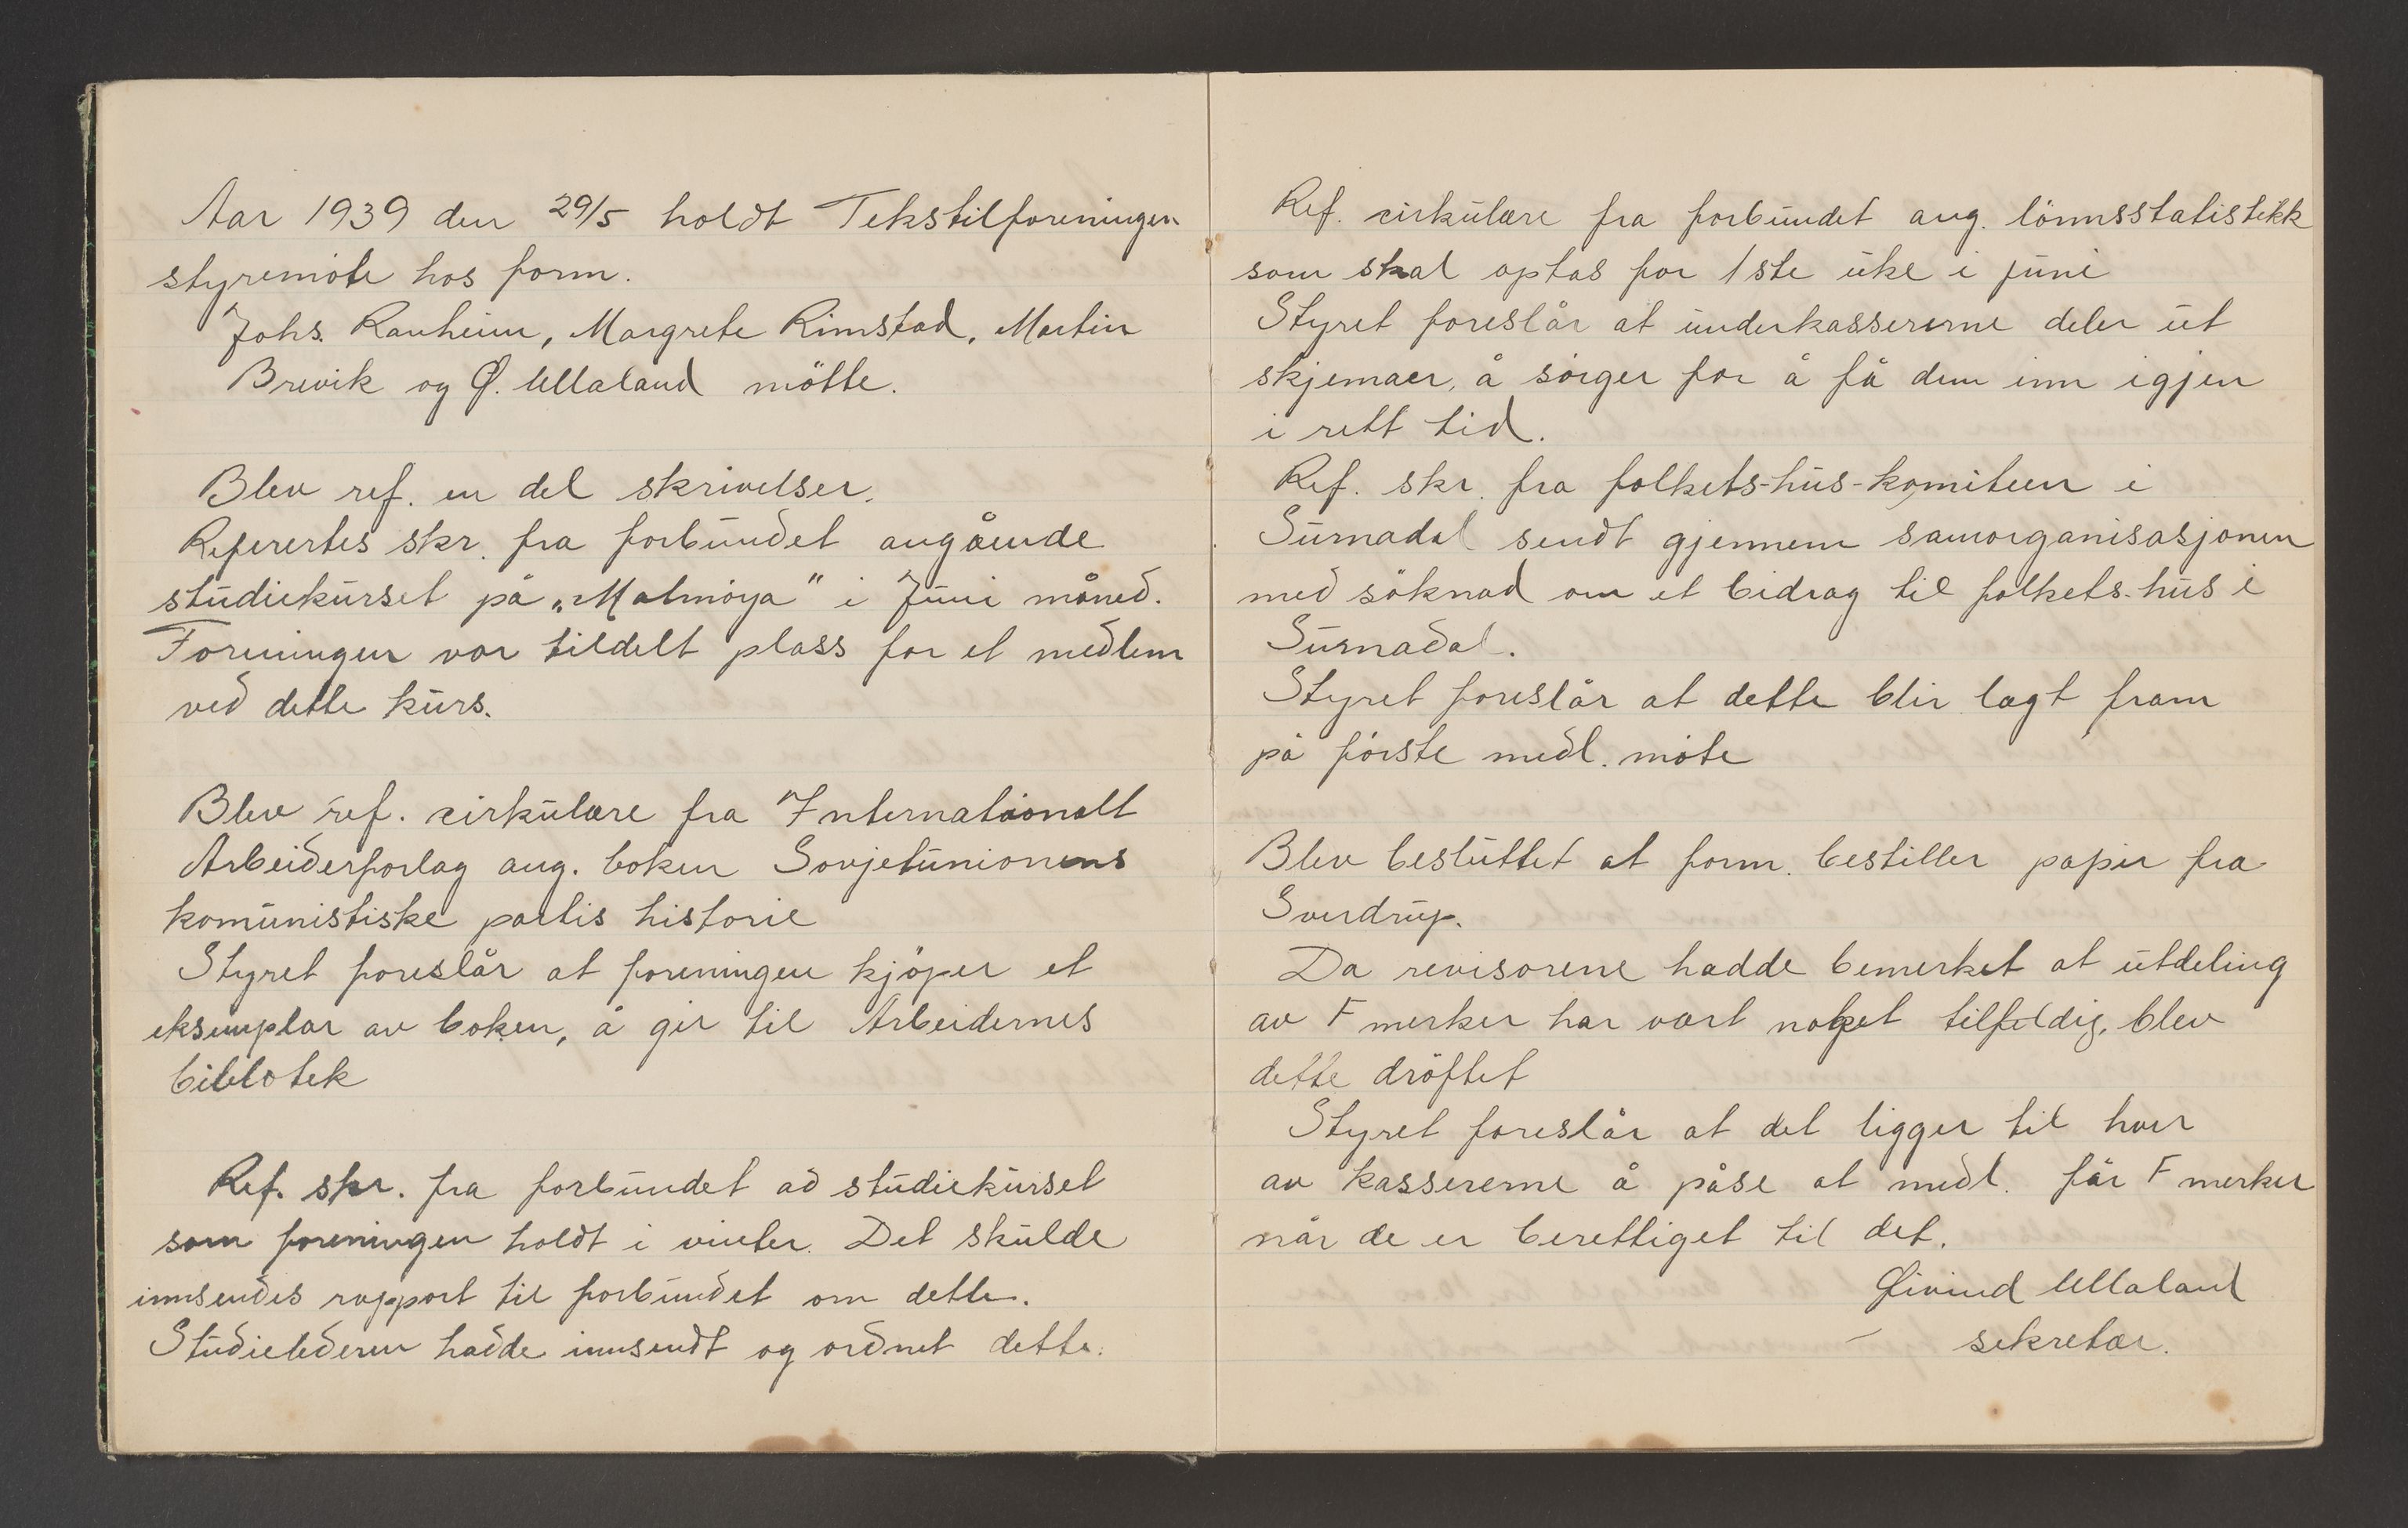 Aar 1939 den 29/5 holdt Tekstilforeningen
styremöte hos form.
Johs. Ranheim, Margrete Rimstad, Martin
Brevik og Ø. Ullaland mötte.
Blev ref. en del skrivelser.
Refererte​s skr. fra forbundet angående
studiekurset på „Malmöya" i Juni måned.
Foreningen var tildelt plass for et medlem
ved dette kurs.
Blev ref. cirkulære fra Internationalt
Arbeiderforlag ang. boken Sovjetunionens
komunistiske partis historie
Styret foreslår at foreningen kjöper et
eksemplar av boken, å gir til Arbeidernes
biblotek
Ref. skr. fra forbundet ad studiekurset
som foreningen holdt i vinter. Det skulde
innsendes rapport til forbundet om dette.
Studielederen hadde innsendt og ordnet dette.
Ref. cirkulære fra forbundet ang. lönnsstatistikk
som skal optas for 1ste uke i juni
Styret foreslår at underkassererne deler ut
skjemaer, å sörger for å få dem inn igjen
i rett tid.
Ref. skr. fra folkets-hus-komiteen i
Surnadal sendt gjennem samorganisasjonen
med söknad om et bidrag til folkets-hus i
Surnadal.
Styret foreslår at dette blir lagt fram
på förste medl. möte
Blev besluttet at form. bestiller papir fra
Sverdrup.
Da revisorene hadde bemerket at utdeling
av F merker har vært noket tilfeldig, blev
dette dröftet
Styret foreslår at det ligger til hver
av kassererne å påse at medl. får F merker
når de er berettiget til det.
Øivind Ullaland
sekretær.